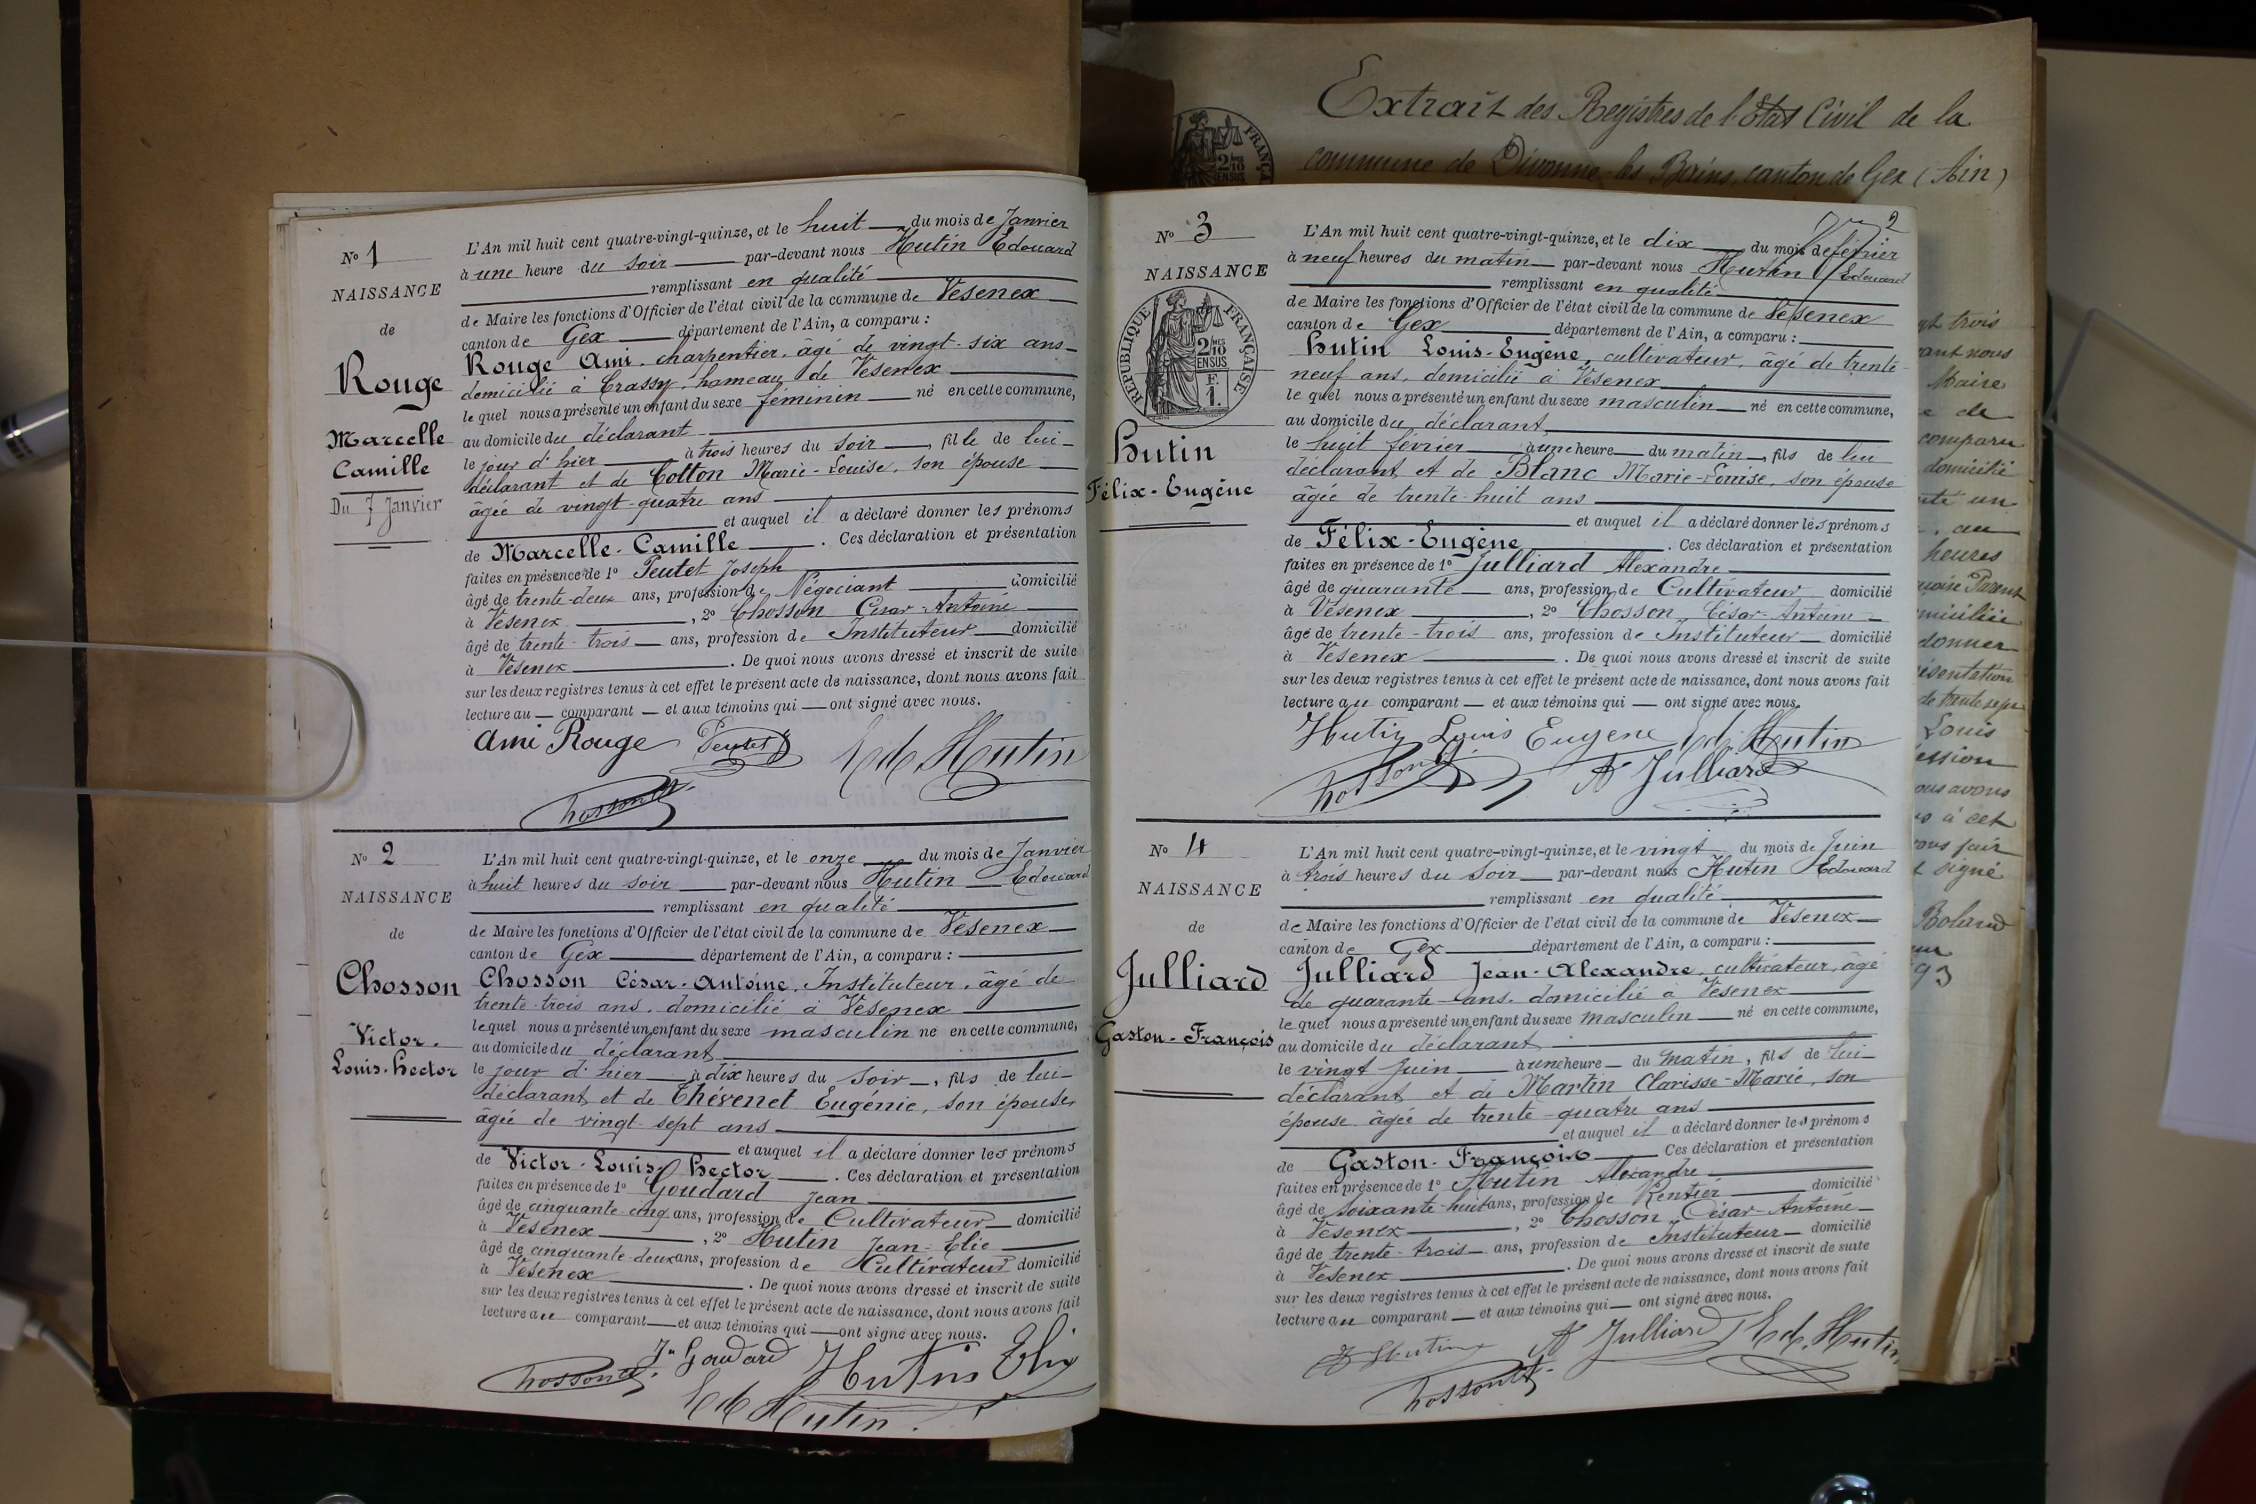 Extrait des Registres de l'Etat Civil de la
commune de Divonne-les Bains, canton de Gex (Ain)
N° 1
NAISSANCE
de
Rouge
Marcelle
Camille
Du 7 Janvier
L'An mil huit cent quatre-vingt-quinze, et le huit du mois de Janvier
à une heure du soir par-devant nous Hutin Edouard
remplissant en qualité
de Maire les fonctions d'Officier de l'état civil de la commune de Vésenex
canton de Gex département de l'Ain, a comparu :
Rouge Ami, charpentier, âgé de vingt-six ans
domicilié à Crassy, hameau de Vésenex
lequel nous a présenté un enfant du sexe féminin né en cette commune,
au domicile du déclarant
le jour d'hier à trois heures du soir, fille de lui
déclarant et de Cotton Marie-Louise, son épouse
âgée de vingt-quatre ans
et auquel il a déclaré donner les prénoms
de Marcelle-Camille. Ces déclaration et présentation
faites en présence de 1° Peutet Joseph
âgé de trente-deux ans, profession de Négociant domicilié
à Vésenex, 2° Chosson César-Antoine
âgé de trente-trois ans, profession de Instituteur domicilié
à Vésenex. De quoi nous avons dressé et inscrit de suite
sur les deux registres tenus à cet effet le présent acte de naissance, dont nous avons fait
lecture au comparant et aux témoins qui ont signé avec nous.
Ami Rouge Peutet J Ed. Hutin
Chosson
N° 2
NAISSANCE
de
Chosson
Victor-
Louis-Hector
L'An mil huit cent quatre-vingt-quinze, et le onze du mois de Janvier
à huit heures du soir par-devant nous Hutin Edouard
remplissant en qualité
de Maire les fonctions d'Officier de l'état civil de la commune de Vésenex
canton de Gex département de l'Ain, a comparu :
Chosson César-Antoine, Instituteur, âgé de
trente-trois ans, domicilié à Vésenex
lequel nous a présenté un enfant du sexe masculin né en cette commune,
au domicile du déclarant
le jour d'hier à dix heures du soir, fils de lui
déclarant et de Thévenet Eugénie, son épouse,
âgée de vingt-sept ans
et auquel il a déclaré donner les prénoms
de Victor-Louis-Hector. Ces déclaration et présentation
faites en présence de 1° Goudard Jean
âgé de cinquante-cinq ans, profession de Cultivateur domicilié
à Vésenex, 2° Hutin Jean-Elie
âgé de cinquante-deux ans, profession de Cultivateur domicilié
à Vésenex. De quoi nous avons dressé et inscrit de suite
sur les deux registres tenus à cet effet le présent acte de naissance, dont nous avons fait
lecture au comparant et aux témoins qui ont signé avec nous.
Jn Goudard Hutin Elie
Chosson Ed. Hutin.
2
N° 3
NAISSANCE
RÉPUBLIQUE FRANÇAISE
2/10 EN SUS
F.
1.
Hutin
Félix-Eugène
L'An mil huit cent quatre-vingt-quinze, et le dix du mois de février
à neuf heures du matin par-devant nous Hutin Edouard
remplissant en qualité
de Maire les fonctions d'Officier de l'état civil de la commune de Vésenex
canton de Gex département de l'Ain, a comparu :
Hutin Louis-Eugène, cultivateur, âgé de trente-
neuf ans, domicilié à Vésenex
lequel nous a présenté un enfant du sexe masculin né en cette commune,
au domicile du déclarant
le huit février à une heure du matin, fils de lui
déclarant et de Blanc Marie-Louise, son épouse
âgée de trente-huit ans
et auquel il a déclaré donner les prénoms
de Félix-Eugène. Ces déclaration et présentation
faites en présence de 1° Julliard Alexandre
âgé de quarante ans, profession de Cultivateur domicilié
à Vésenex, 2° Chosson César-Antoine
âgé de trente-trois ans, profession de Instituteur domicilié
à Vésenex. De quoi nous avons dressé et inscrit de suite
sur les deux registres tenus à cet effet le présent acte de naissance, dont nous avons fait
lecture au comparant et aux témoins qui ont signé avec nous.
Hutin Louis Eugene Ed. Hutin
Chosson A Julliard
N° 4
NAISSANCE
de
Julliard
Gaston-François
L'An mil huit cent quatre-vingt-quinze, et le vingt du mois de Juin
à trois heures du soir par-devant nous Hutin Edouard
remplissant en qualité
de Maire les fonctions d'Officier de l'état civil de la commune de Vésenex
canton de Gex département de l'Ain, a comparu :
Julliard Jean-Alexandre, cultivateur, âgé
de quarante ans, domicilié à Vésenex
lequel nous a présenté un enfant du sexe masculin né en cette commune,
au domicile du déclarant
le vingt Juin à une heure du matin, fils de lui
déclarant et de Martin Clarisse-Marie, son
épouse âgée de trente-quatre ans
et auquel il a déclaré donner les prénoms
de Gaston-François Ces déclaration et présentation
faites en présence de 1° Hutin Alexandre
âgé de soixante-huit ans, profession de Rentier domicilié
à Vésenex, 2° Chosson César-Antoine
âgé de trente-trois ans, profession de Instituteur domicilié
à Vésenex. De quoi nous avons dressé et inscrit de suite
sur les deux registres tenus à cet effet le présent acte de naissance, dont nous avons fait
lecture au comparant et aux témoins qui ont signé avec nous.
A Hutin A Julliard Ed. Hutin
Chosson
trois
nous
Maire
de
comparu
domicilié
un
au
heures
donner
Louis
avons
à cet
signé
Boland
93